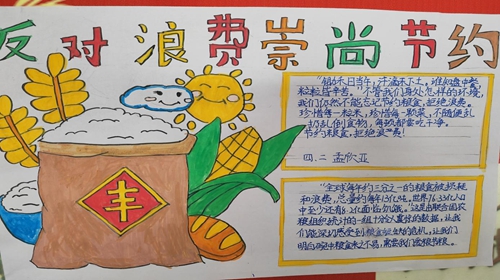 反对浪费崇尚节约
丰
"锄禾日当午,汗滴禾下土,谁知盘中餐,
粒粒皆辛苦。"不管我们身处怎样的环境,
我们仍然不能忘记节约粮食,拒绝浪费。
珍惜每一粒米,珍惜每一颗菜,不随便乱
扔乱倒食物,每顿都要吃干净。
节约粮食,拒绝浪费!
四.二 孟
"全球每年约三分之一的粮食被损耗
和浪费,总量约每年13亿吨,世界
中至少还有8.2亿面临饥饿。"这是出联合国农
粮组织统计的一组十分令人震惊的数据,让我
们能深切感受到粮食的危机,让我们
明白碗中粮食来之不易,需要我们爱粮节粮。